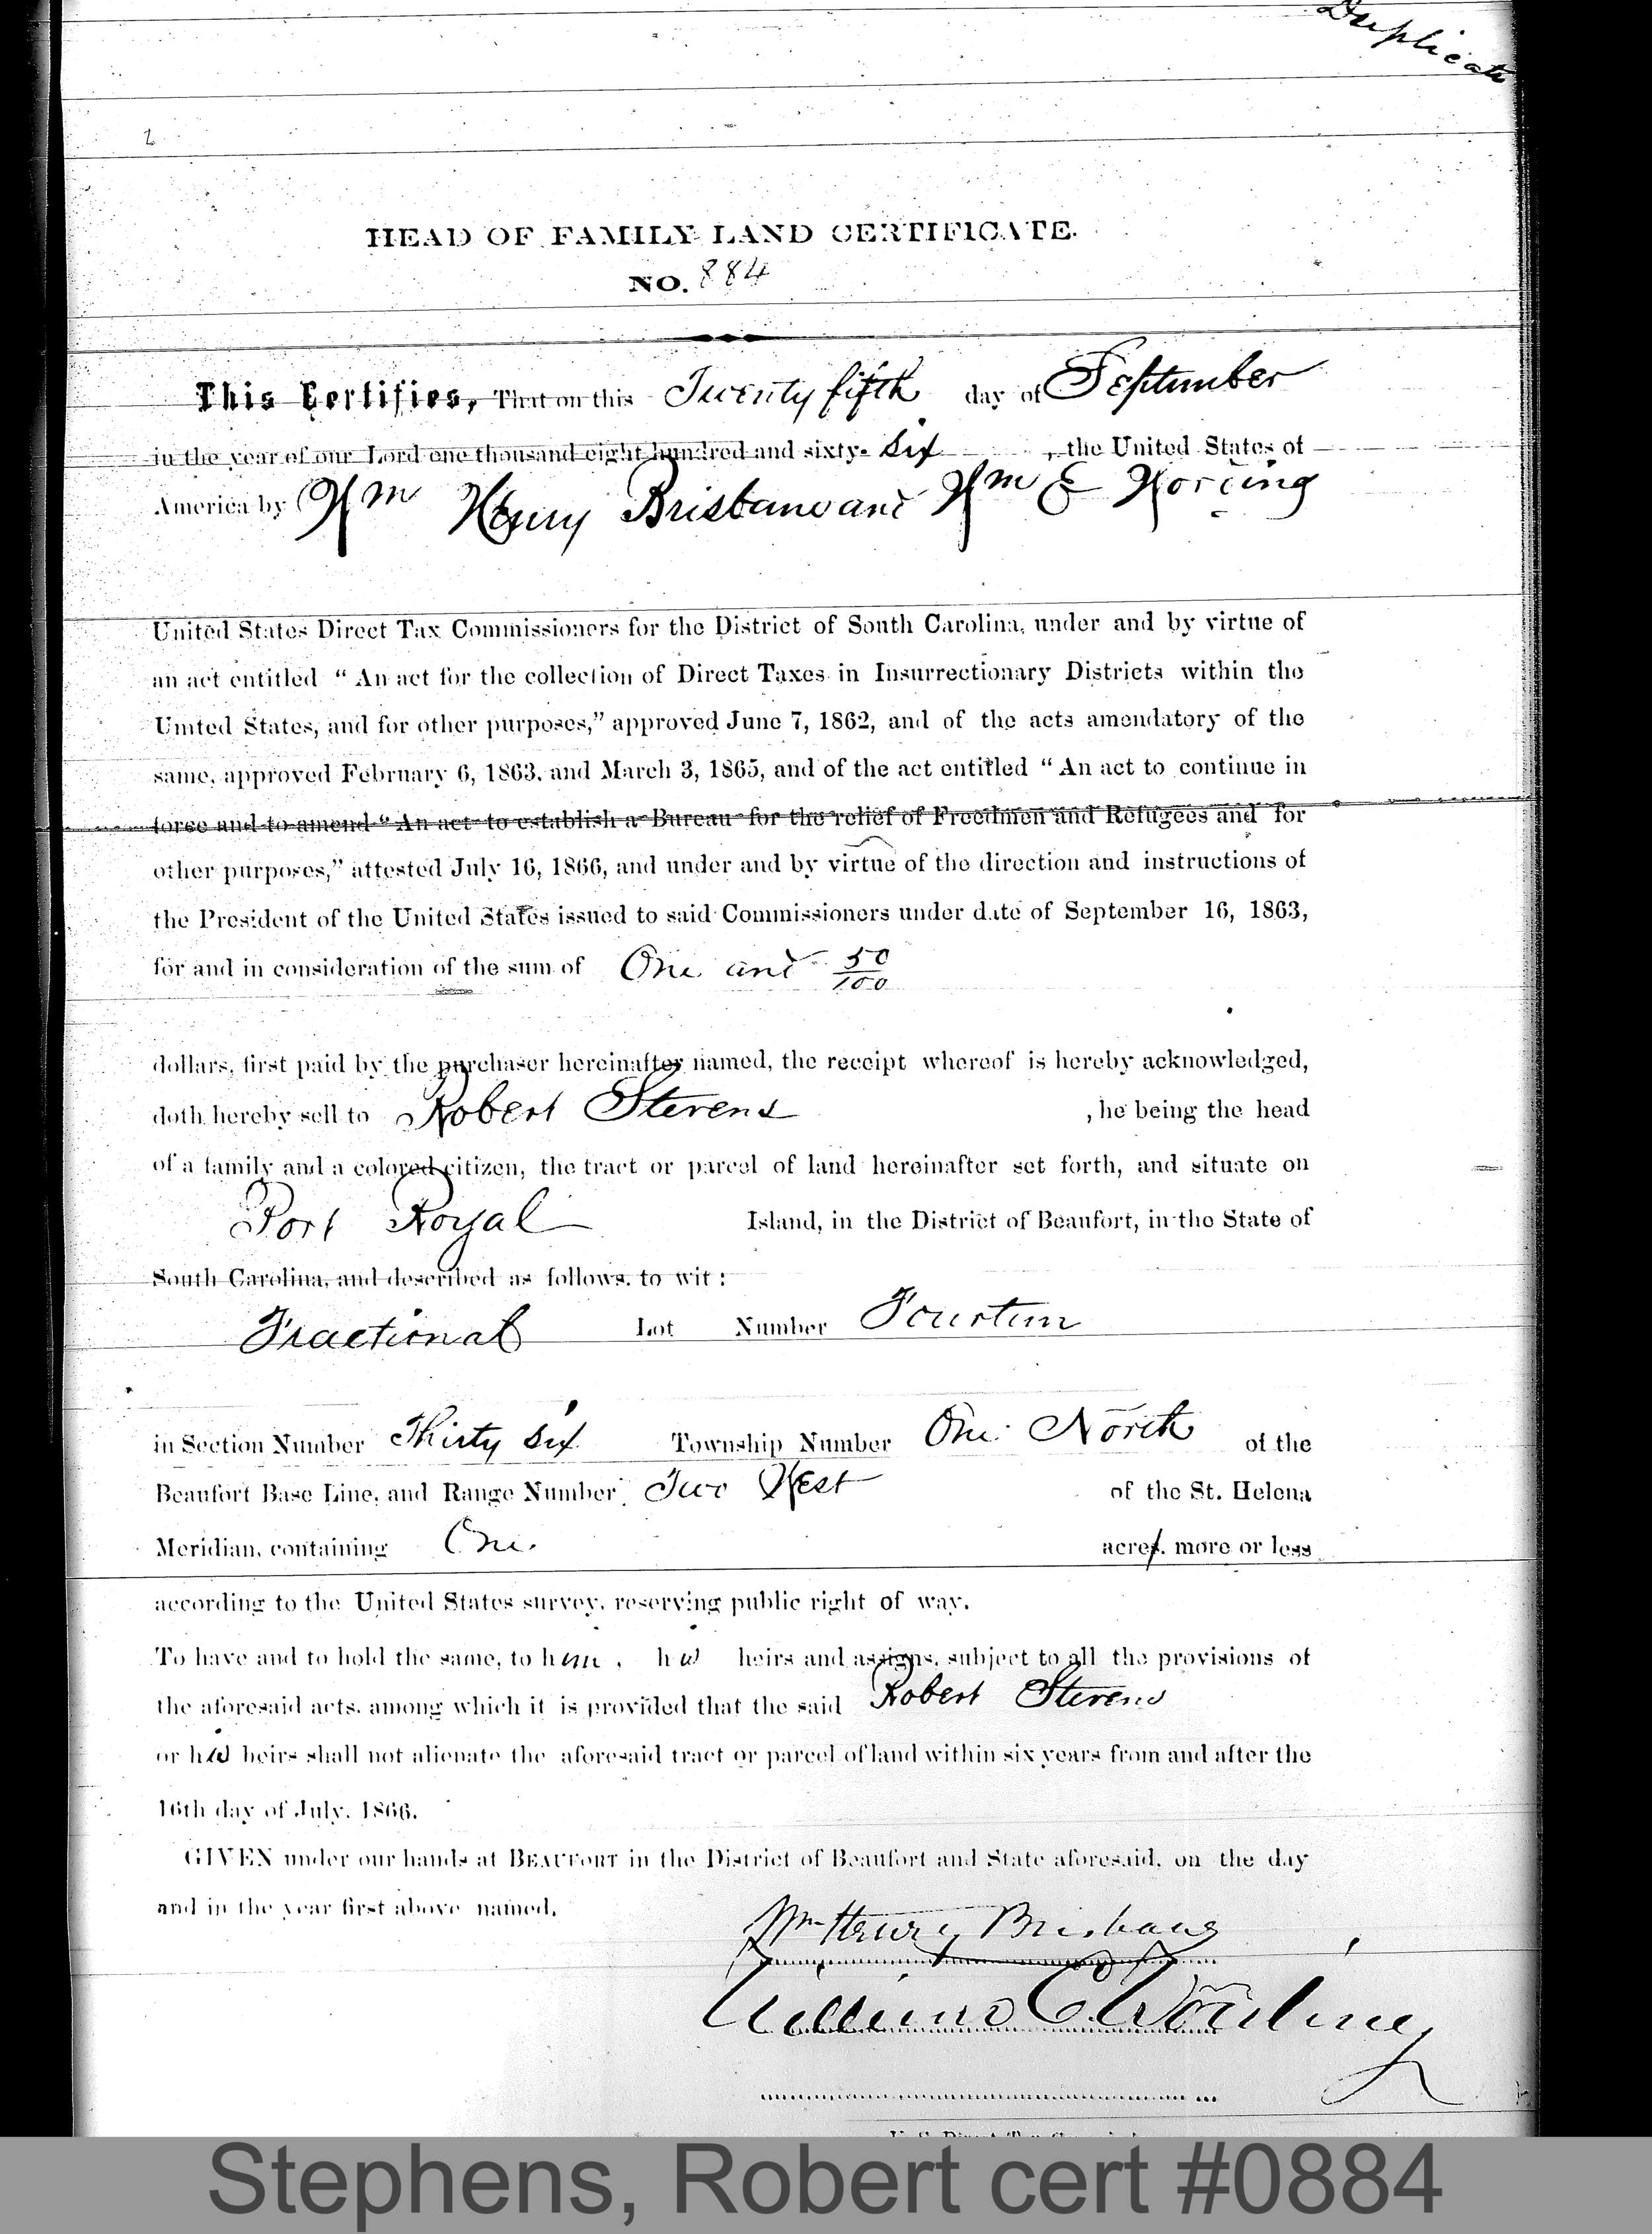 Duplicate
HEAD OF FAMILY LAND CERTIFICATE.
NO. 884
This Certifies, That on this Twenty fifth day of September
in the year of our Lord one thousand eight hundred and sixty-six, the United States of
America by Wm Henry Brisbane and Wm E Wording
United States Direct Tax Commissioners for the District of South Carolina, under and by virtue of
an act entitled “An act for the collection of Direct Taxes in Insurrectionary Districts within the
United States, and for other purposes,” approved June 7, 1862, and of the acts amendatory of the
same, approved February 6, 1863, and March 3, 1865, and of the act entitled “An act to continue in
force and to amend “An act to establish a Bureau for the relief of Freedmen and Refugees and for
other purposes,” attested July 16, 1866, and under and by virtue of the direction and instructions of
the President of the United States issued to said Commissioners under date of September 16, 1863,
for and in consideration of the sum of One and 50/100
dollars, first paid by the purchaser hereinafter named, the receipt whereof is hereby acknowledged,
doth hereby sell to Robert Stevens , he being the head
of a family and a colored citizen, the tract or parcel of land hereinafter set forth, and situate on
Port Royal Island, in the District of Beaufort, in the State of
South Carolina, and described as follows, to wit:
Fractional Lot Number Fourteen
in Section Number Thirty Six Township Number One North of the
Beaufort Base Line, and Range Number Two West of the St. Helena
Meridian, containing One acre, more or less
according to the United States survey, reserving public right of way.
To have and to hold the same, to him, his heirs and assigns, subject to all the provisions of
the aforesaid acts, among which it is provided that the said Robert Stevens
or his heirs shall not alienate the aforesaid tract or parcel of land within six years from and after the
16th day of July, 1866.
GIVEN under our hands at BEAUFORT in the District of Beaufort and State aforesaid, on the day
and in the year first above named.
Wm Henry Brisbane
William E. Wording
Stephens, Robert cert #0884